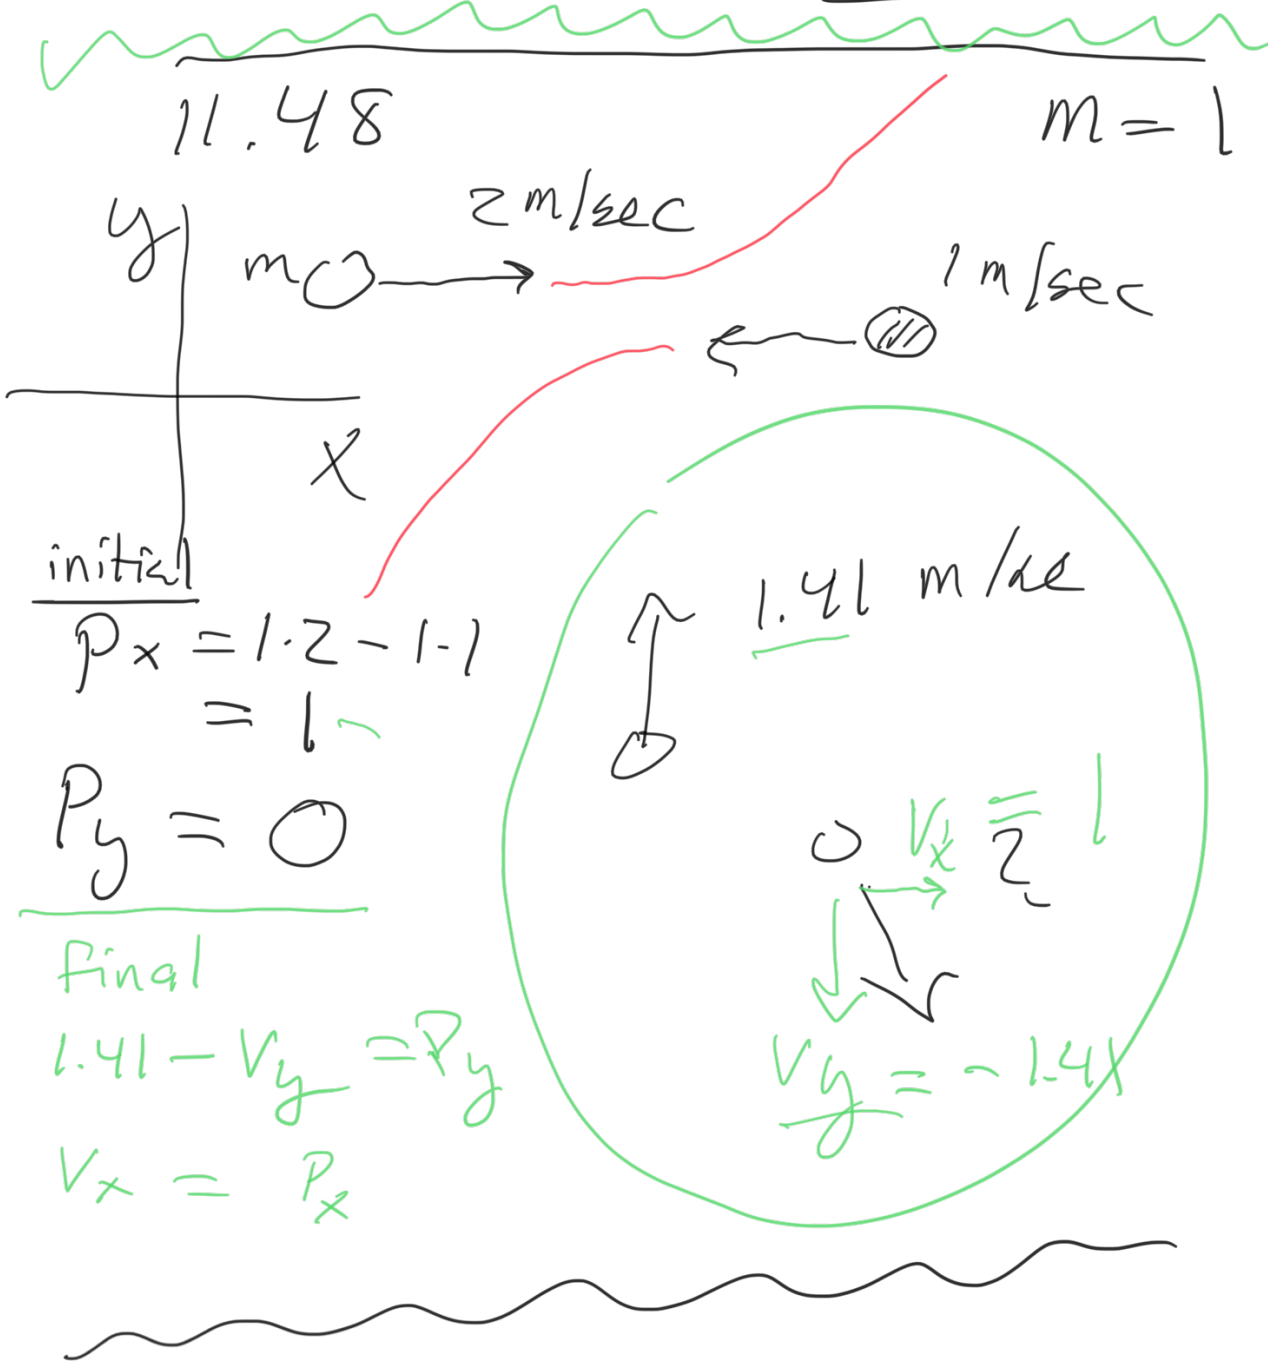 11.48
m = 1
2 m/sec
y
m
1 m/sec
x
initial
Px = 1·2 - 1·1
= 1
Py = 0
1.41 m/se
Vx = 1
2
Vy = -1.41
final
1.41 - Vy = Py
Vx = Px